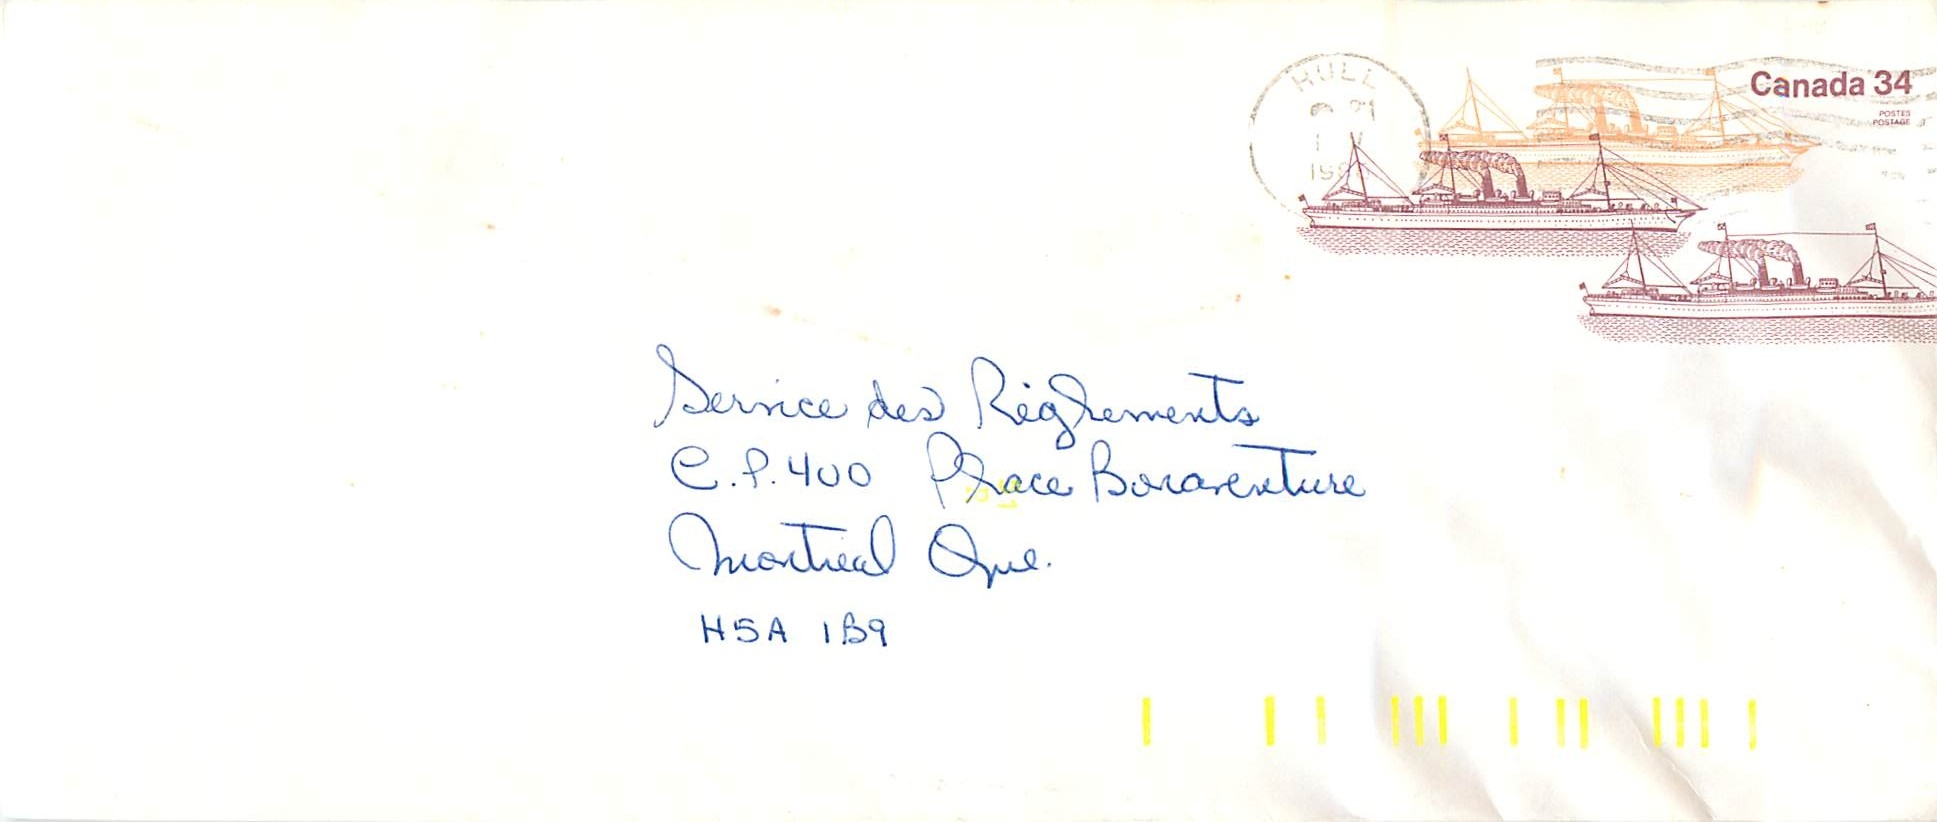 HULL
Canada 34
POSTES
POSTAGE
Service des Réglements
C.P. 400 Place Bonaventure
Montreal Que.
H5A 1B9